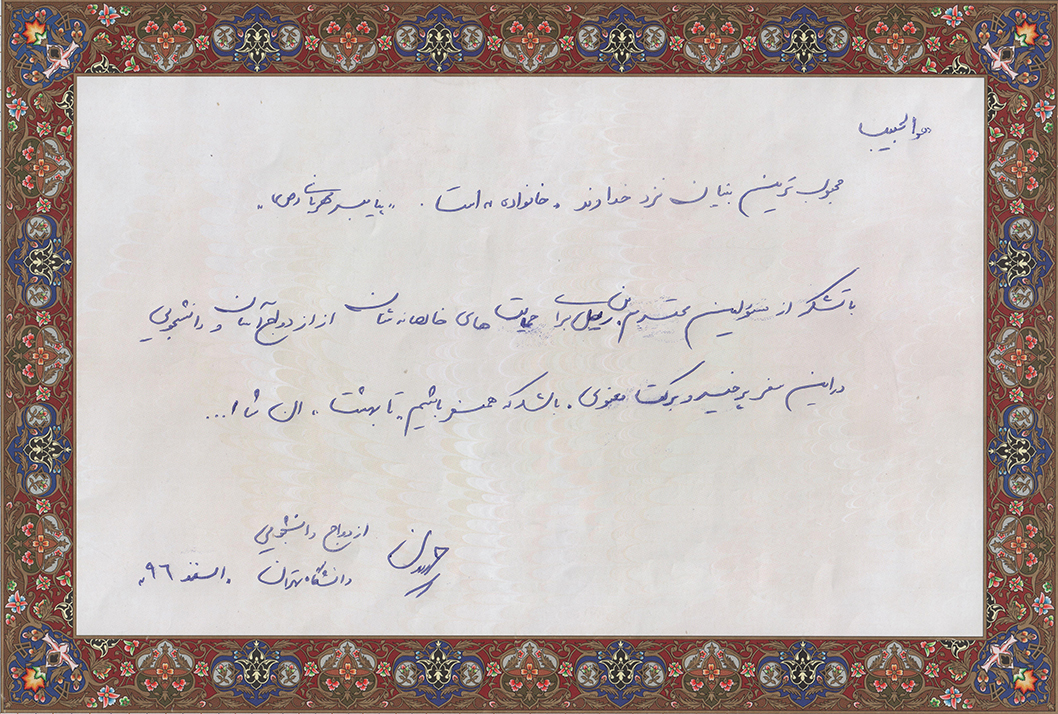 هوالحبیب
محبوب ترین بنیان نزد خداوند «خانواده» است. "پیامبر مهربانی (ص)"
با تشکر از مسئولین محترم برای حمایت های خالصانه شان از ازدواج آسان و دانشجویی
در این سفر پر خیر و برکت معنوی. باشد که همسفر باشیم "تا بهشت". ان شاا...
ازدواج دانشجویی
دانشگاه تهران "اسفند ۹۶"